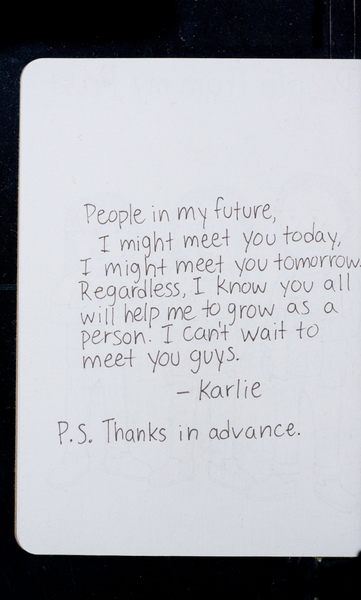 People in my future,
I might meet you today,
I might meet you tomorrow.
Regardless, I know you all
will help me to grow as a
person. I can't wait to
meet you guys.
- Karlie
P.S. Thanks in advance.